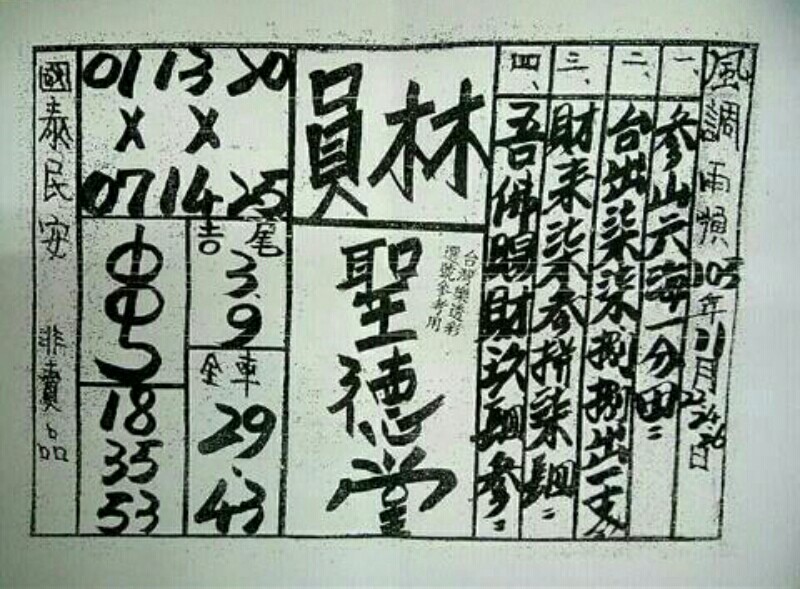 風調雨順 105年01月22.24.26日
一、參山六海一分田=
二、台出柒柒捌捌出一支
三、財來柒參拼柒
四、吾佛賜財玖 參=
員林
聖德堂
台灣樂透彩
選號參考用
01 13 20
X X
07 14 25
吉尾
3.9
全車
29.43
18
35
53
國泰民安 非賣品